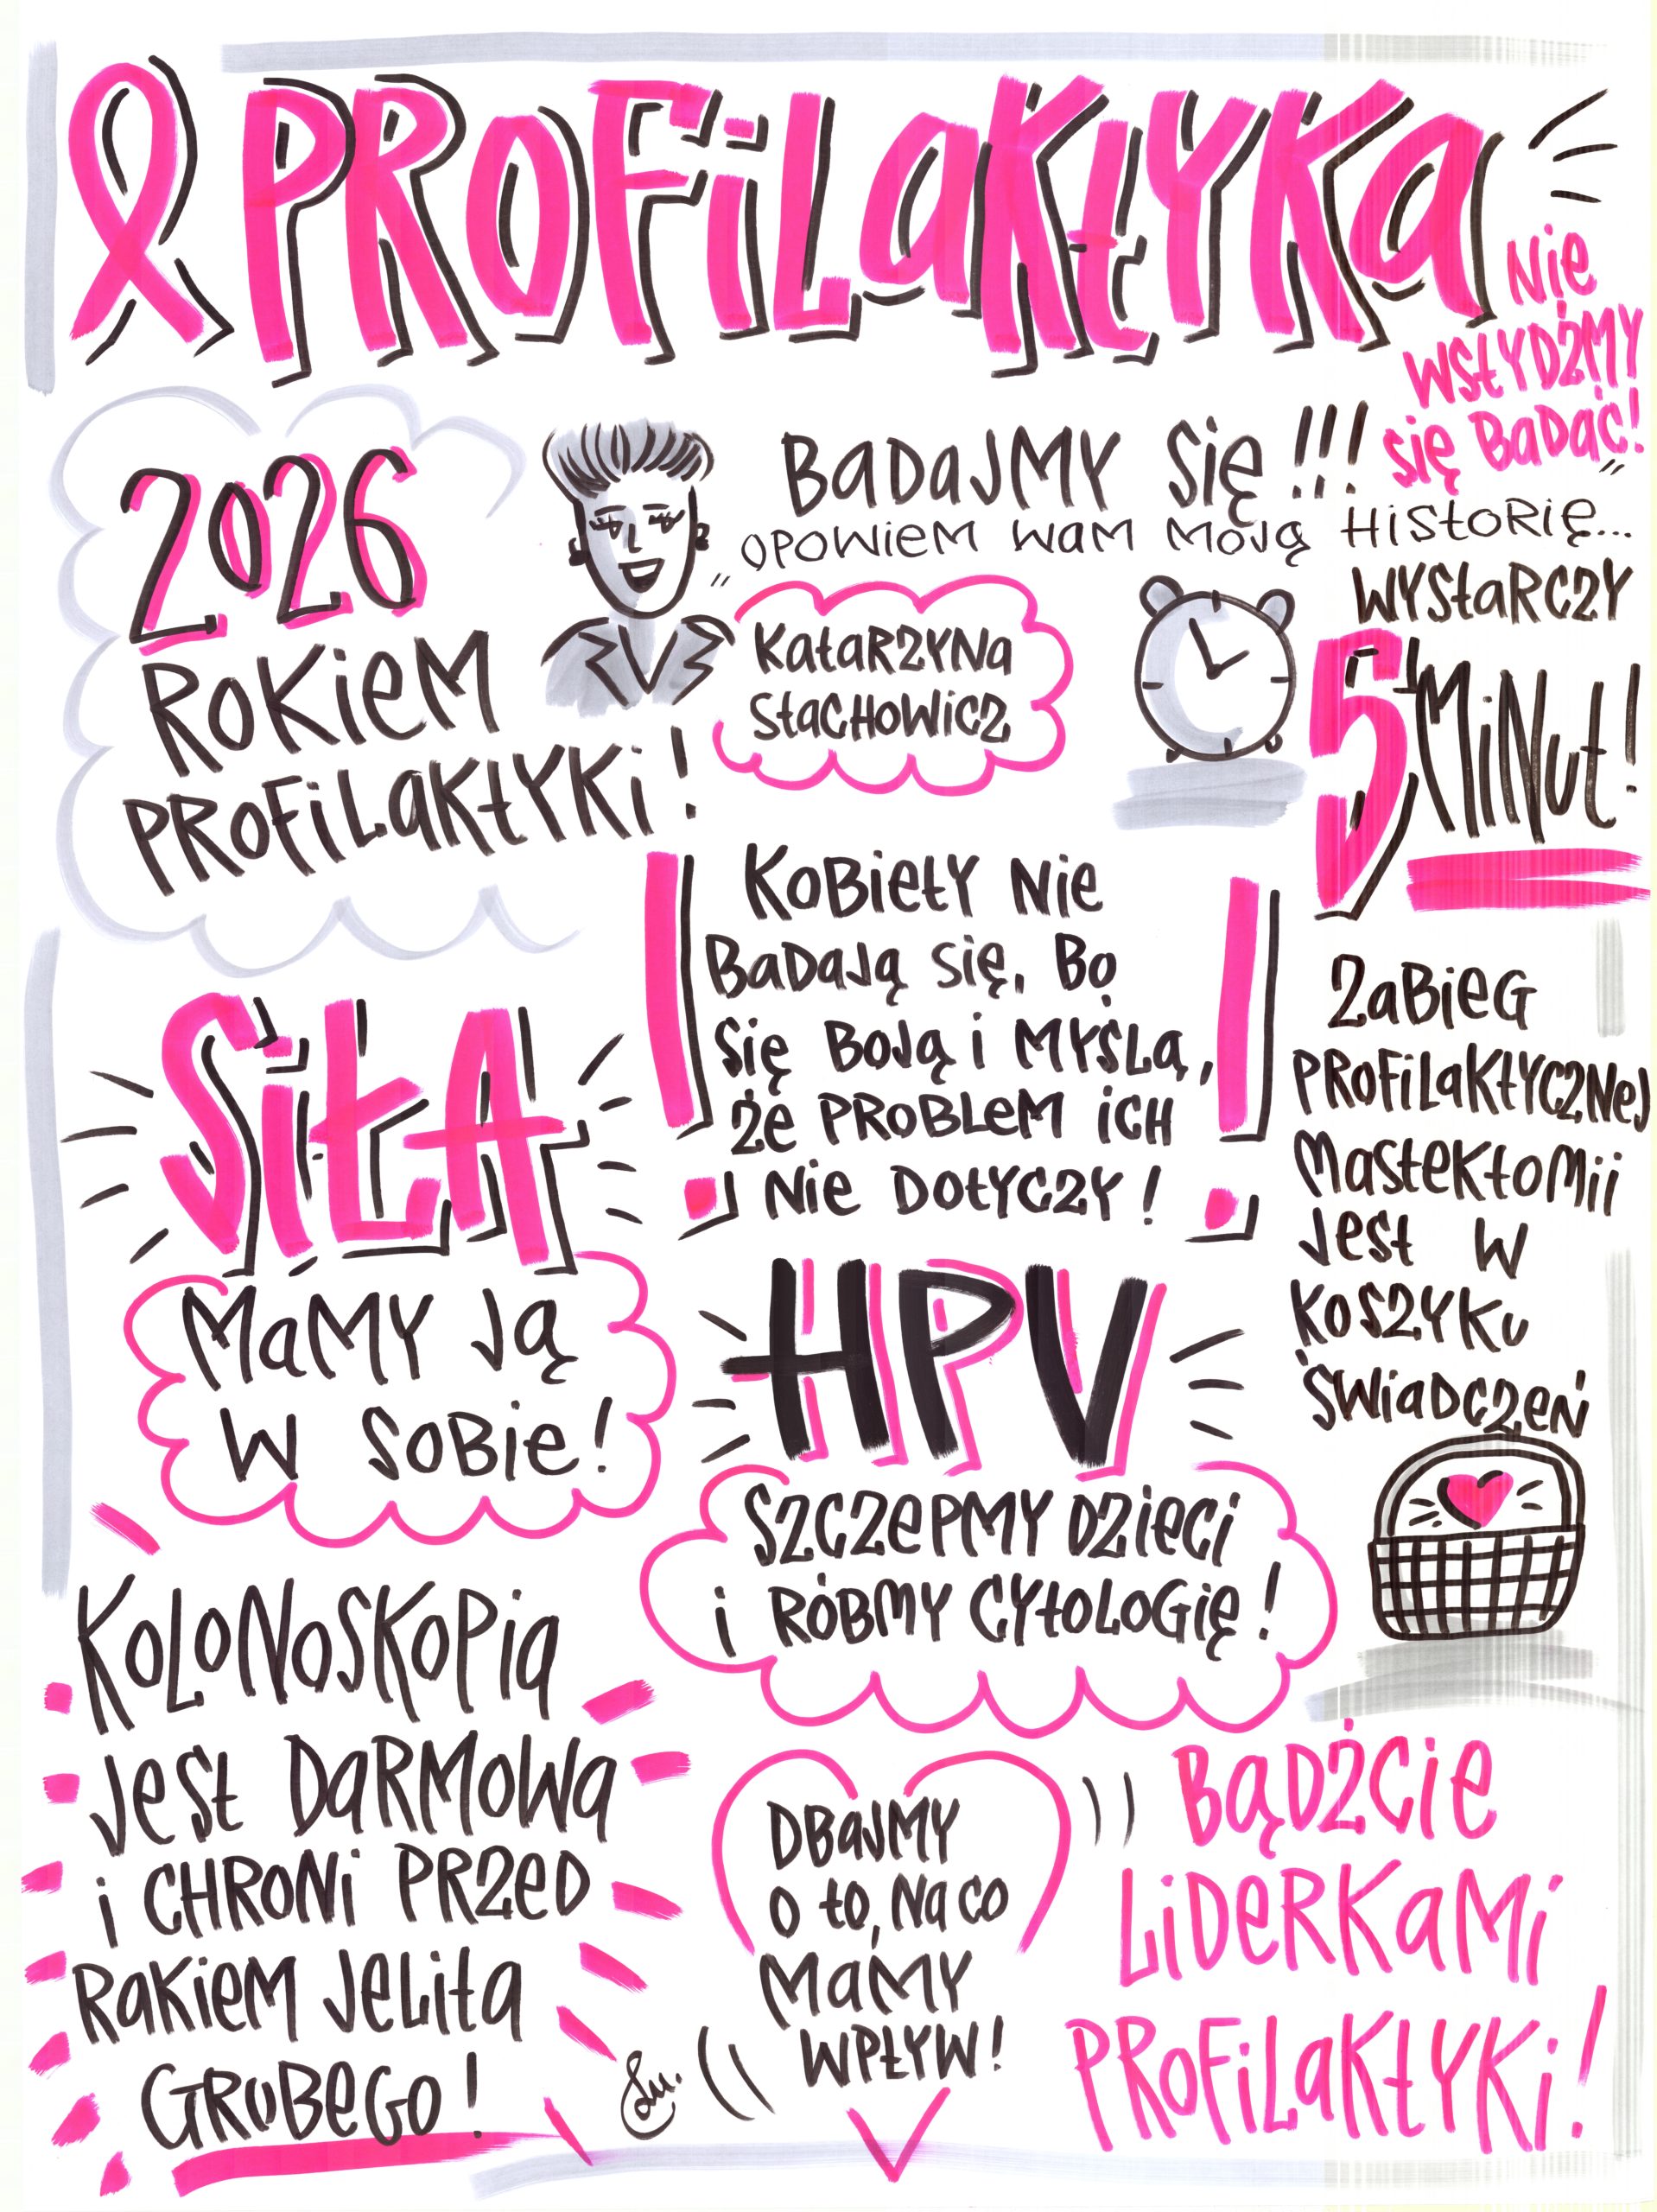 PROFILAKTYKA
NIE
WSTYDŹMY
SIĘ BADAĆ!
2026
ROKIEM
PROFILAKTYKI!
BADAJMY SIĘ!!!
„OPOWIEM WAM MOJĄ HISTORIĘ...”
KATARZYNA
STACHOWICZ
WYSTARCZY
5 MINUT!
KOBIETY NIE
BADAJĄ SIĘ, BO
SIĘ BOJĄ I MYŚLĄ,
ŻE PROBLEM ICH
NIE DOTYCZY!
ZABIEG
PROFILAKTYCZNEJ
MASTEKTOMII
JEST W
KOSZYKU
ŚWIADCZEŃ
SIŁA
MAMY JĄ
W SOBIE!
HPV
SZCZEPMY DZIECI
I RÓBMY CYTOLOGIĘ!
KOLONOSKOPIA
JEST DARMOWA
I CHRONI PRZED
RAKIEM JELITA
GRUBEGO!
DBAJMY
O TO, NA CO
MAMY
WPŁYW!
BĄDŹCIE
LIDERKAMI
PROFILAKTYKI!